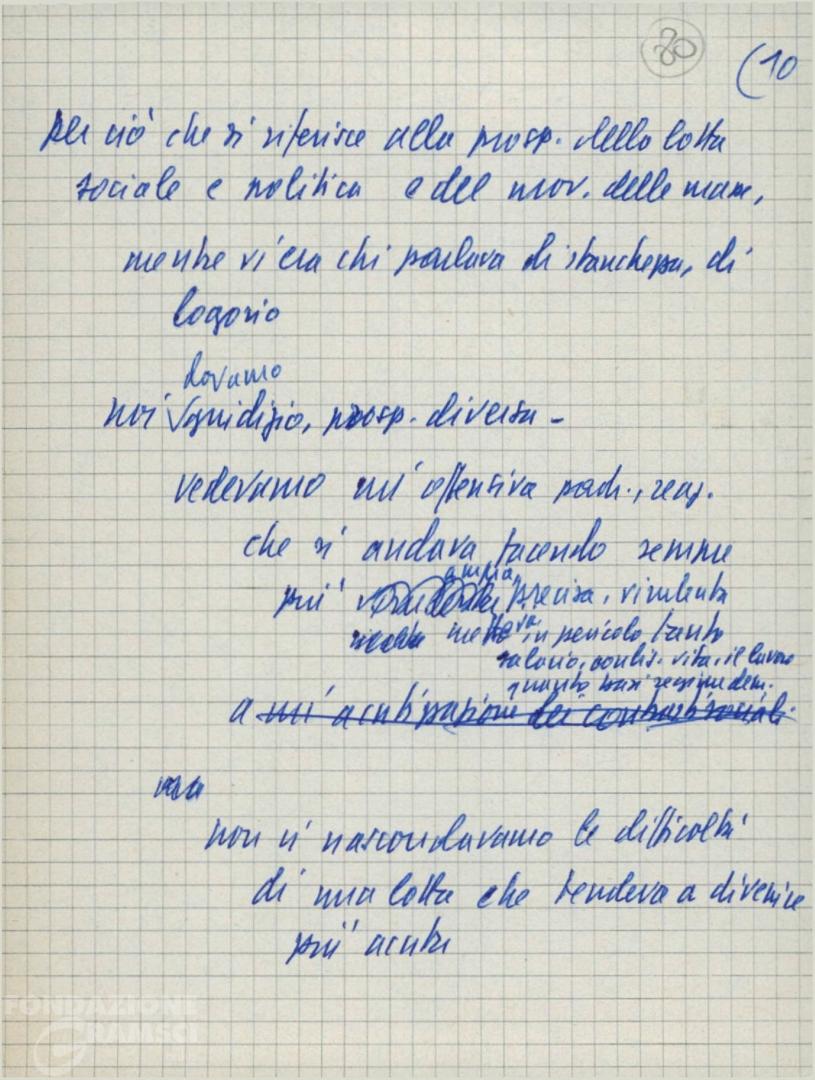 20
(10
per ciò che si riferisce alla prosp. della lotta
sociale e politica e del mov. delle masse,
mentre vi era chi parlava di stanchezza, di
logorio
davamo
noi giudizio, prosp. diversa -
vedevamo un'offensiva padr., reaz.
che si andava facendo sempre
ampia,
più precisa, virulenta
metteva in pericolo tanto
salario, condiz. vita, il lavoro
quanto basi regime dem.
a un'acutizzazione dei contrasti sociali.
ma
non ci nascondavamo le difficoltà
di una lotta che tendeva a divenire
più acuta
FONDAZIONE
GRAMSCI